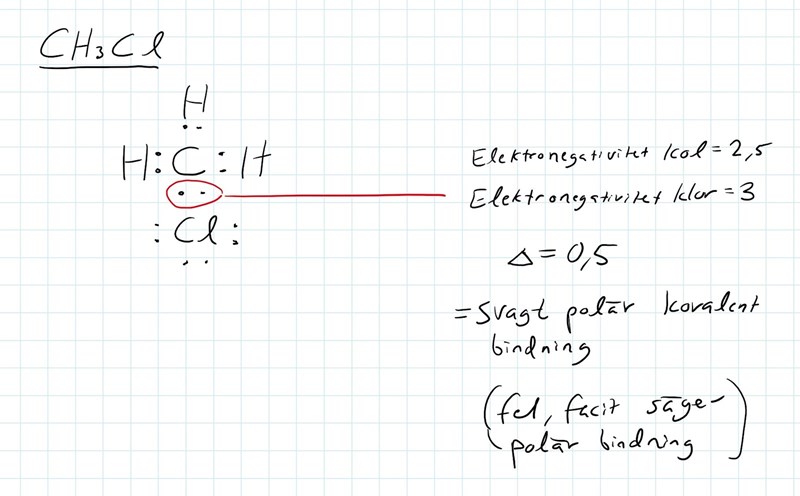 CH₃Cl
H
H:C:H
:Cl:
Elektronegativitet kol = 2,5
Elektronegativitet klor = 3
Δ = 0,5
= svagt polär kovalent
bindning
(fel, facit säger
polär bindning)